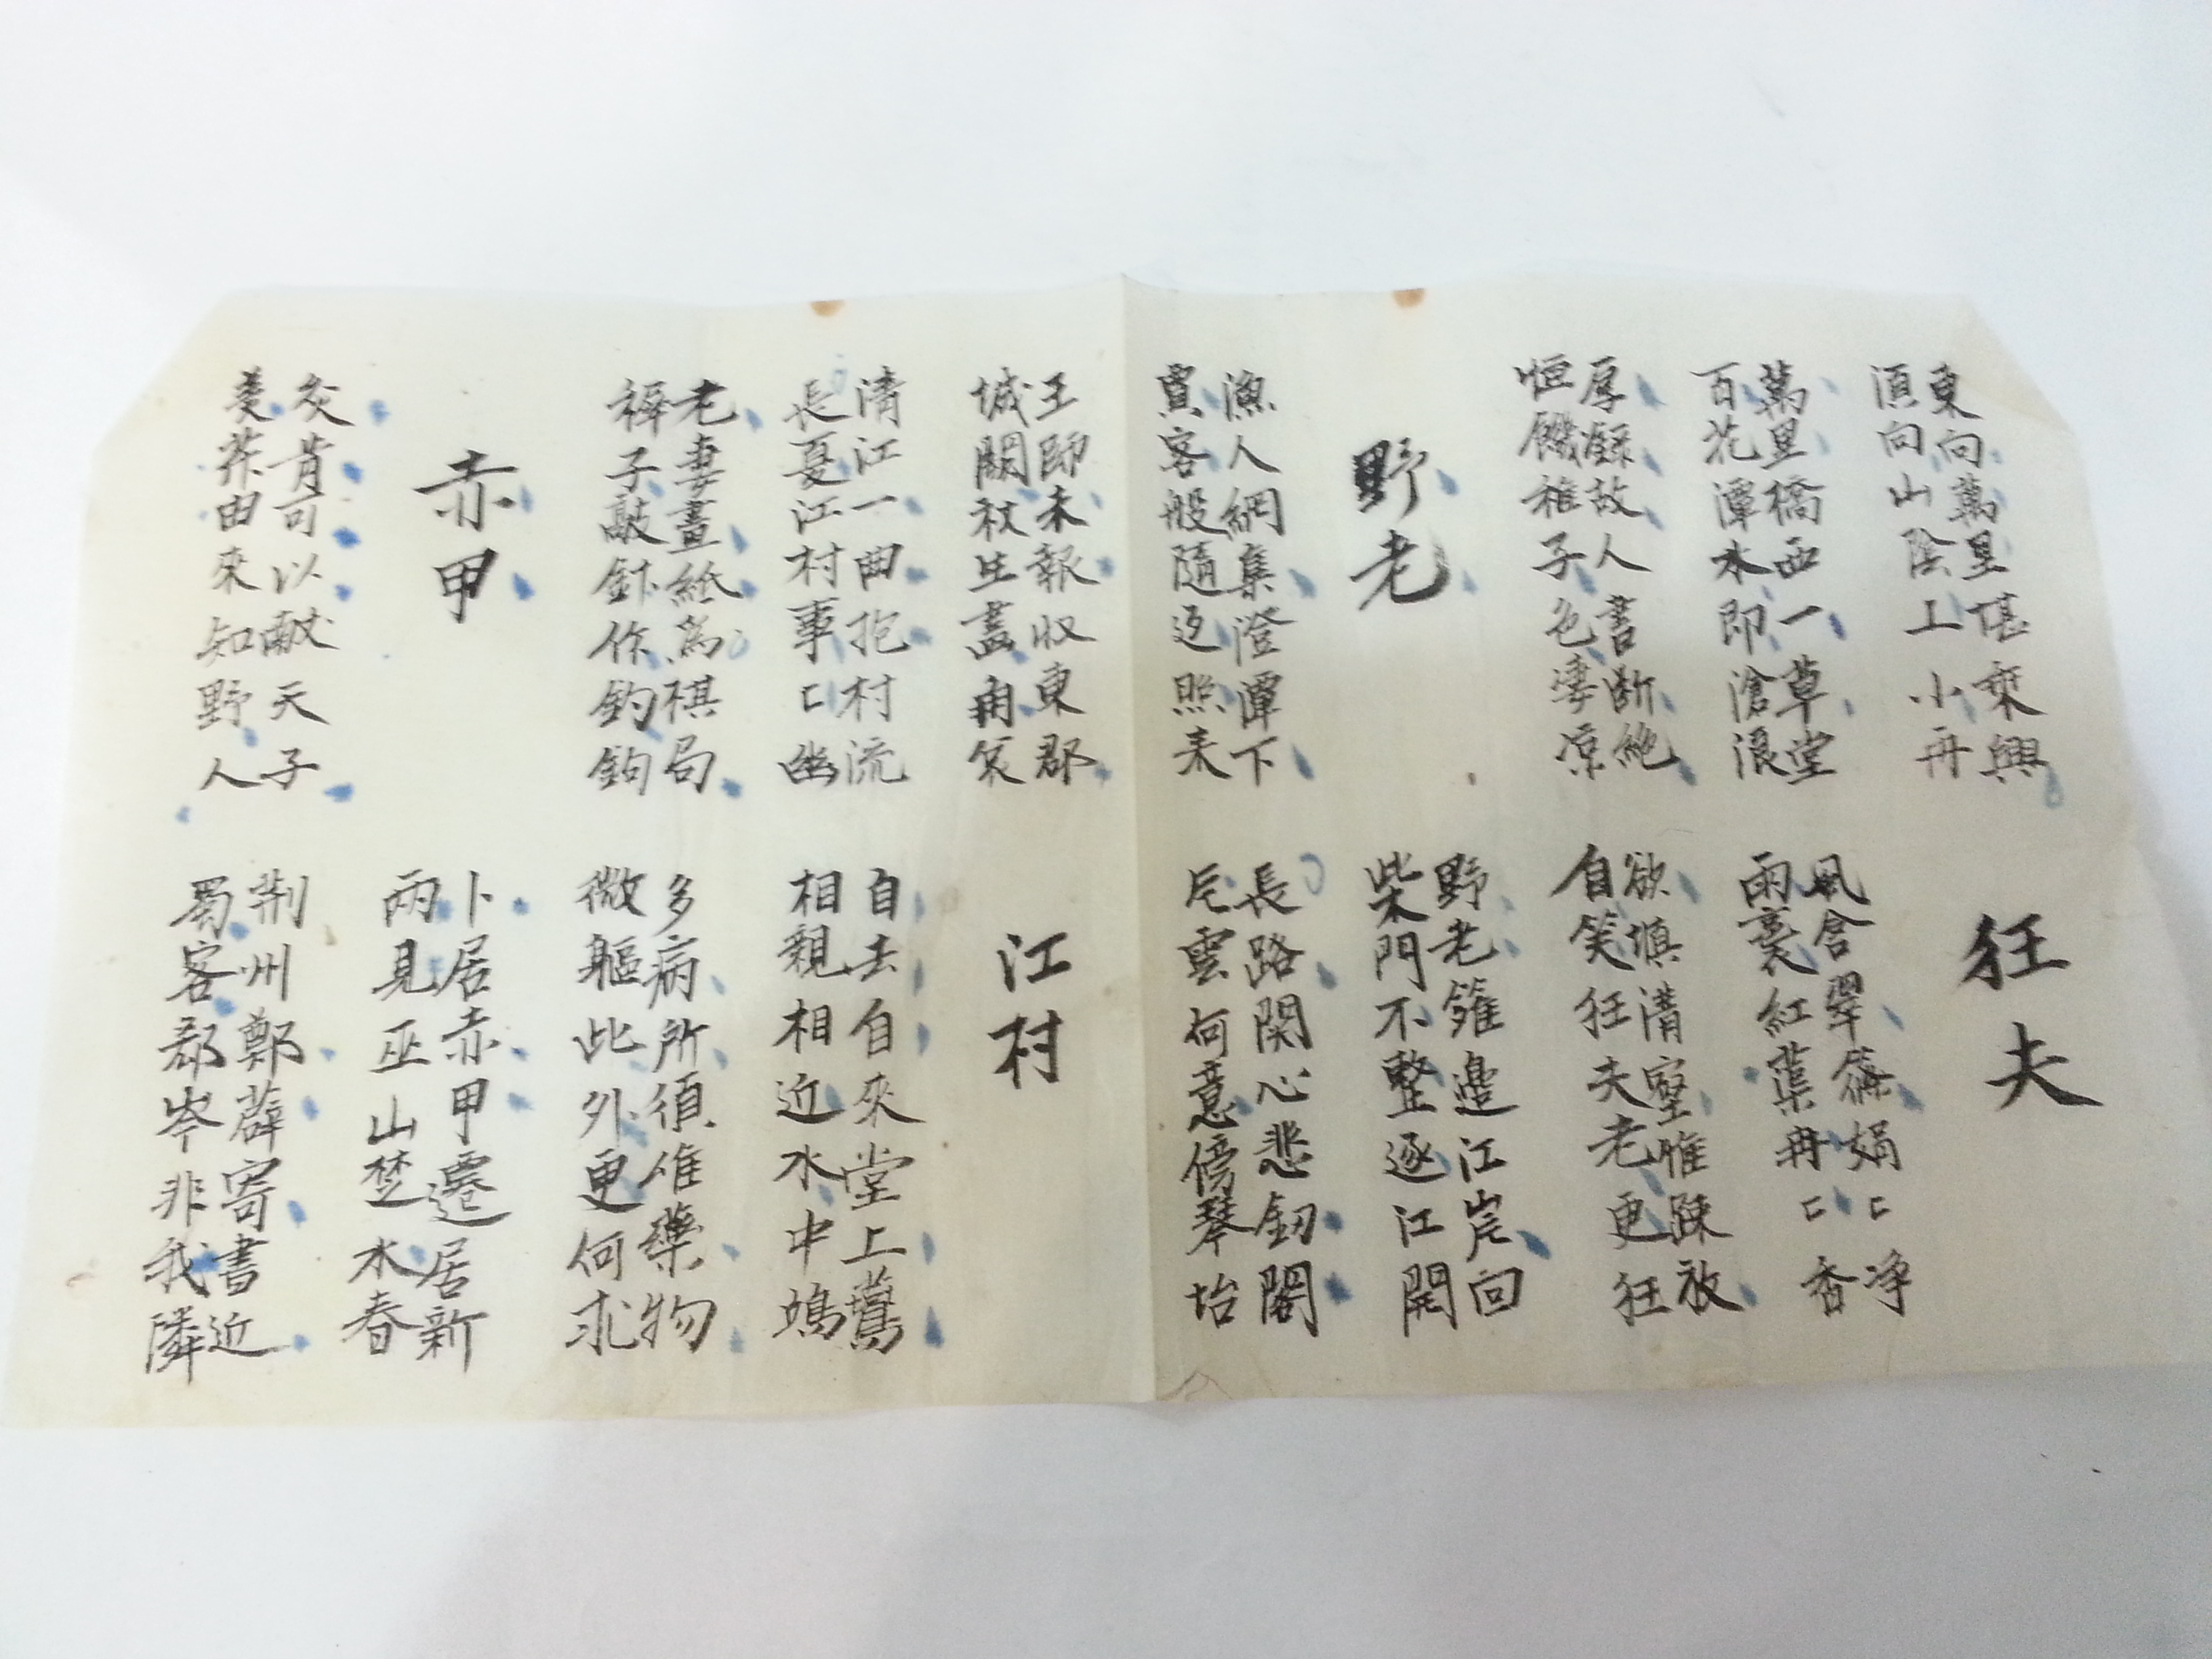 東向萬里堪乘興
須向山陰上小舟
狂夫
萬里橋西一草堂
百花潭水即滄浪
風含翠篠娟〻净
雨裛紅蕖冉〻香
厚録故人書断絶
恒饑稚子色凄凉
欲填溝壑惟疎放
自笑狂夫老更狂
野老
野老籬邊江岸回
柴門不整逐江開
漁人網集澄潭下
賈客般隨返照来
長路関心悲釼閣
片雲何意傍琴坮
王師未報収東郡
城闕秋生畵角哀
江村
清江一曲抱村流
長夏江村事〻幽
自去自來堂上鷰
相親相近水中鴣
老妻畫紙為棋局
稺子敲針作釣鉤
多病所須唯藥物
微軀此外更何求
赤甲
卜居赤甲遷居新
兩見巫山楚水春
炙背可以献天子
美芹由來知野人
荆州鄭薜寄書近
蜀客郄岑非我隣